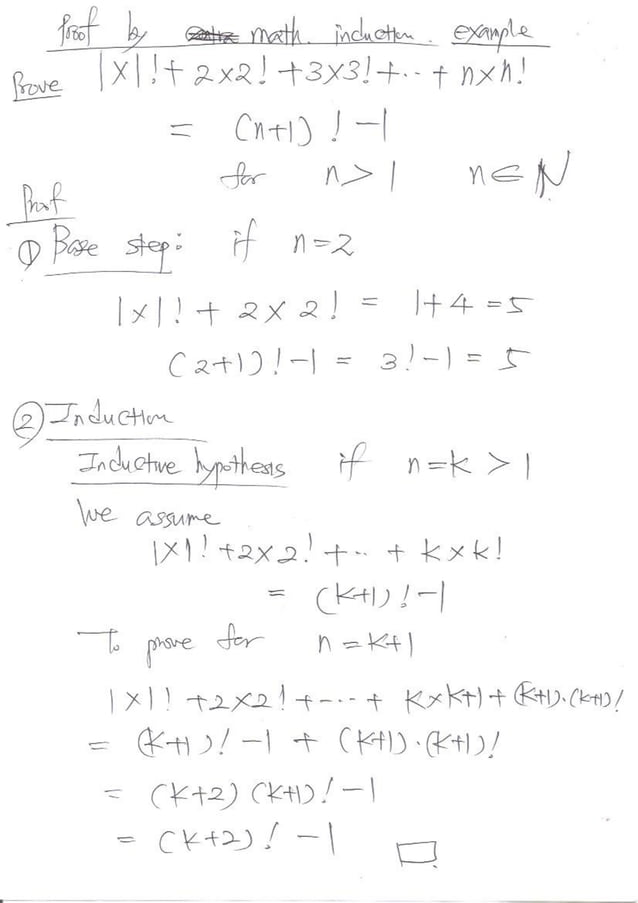 Proof by math. induction. example
Prove 1×1! + 2×2! + 3×3! + ... + n×n!
= (n+1)! - 1
for n > 1 n ∈ N
Proof
① Base step: if n=2
1×1! + 2×2! = 1+4 = 5
(2+1)! - 1 = 3! - 1 = 5
② Induction
Inductive hypothesis if n=k > 1
We assume
1×1! + 2×2! + ... + k×k!
= (k+1)! - 1
To prove for n = k+1
1×1! + 2×2! + ... + k×k+1 + (k+1)·(k+1)!
= (k+1)! - 1 + (k+1)·(k+1)!
= (k+2)(k+1)! - 1
= (k+2)! - 1 □